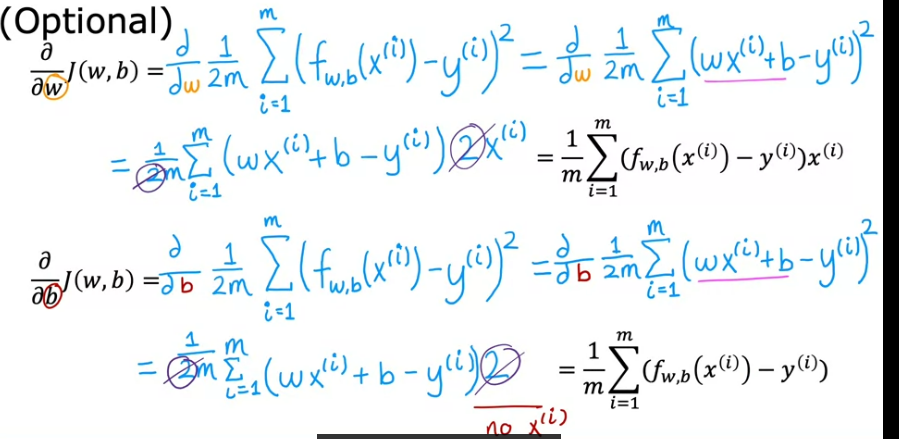 (Optional)
∂/∂w J(w,b) = d/dw 1/2m Σ_{i=1}^{m} (f_{w,b}(x^{(i)}) − y^{(i)})² = d/dw 1/2m Σ_{i=1}^{m} (wx^{(i)} + b − y^{(i)})²
= 1/2m Σ_{i=1}^{m} (wx^{(i)} + b − y^{(i)}) 2 x^{(i)} = 1/m Σ_{i=1}^{m} (f_{w,b}(x^{(i)}) − y^{(i)})x^{(i)}
∂/∂b J(w,b) = ∂/∂b 1/2m Σ_{i=1}^{m} (f_{w,b}(x^{(i)}) − y^{(i)})² = ∂/∂b 1/2m Σ_{i=1}^{m} (wx^{(i)} + b − y^{(i)})²
= 1/2m Σ_{i=1}^{m} (wx^{(i)} + b − y^{(i)}) 2 = 1/m Σ_{i=1}^{m} (f_{w,b}(x^{(i)}) − y^{(i)})
no x^{(i)}